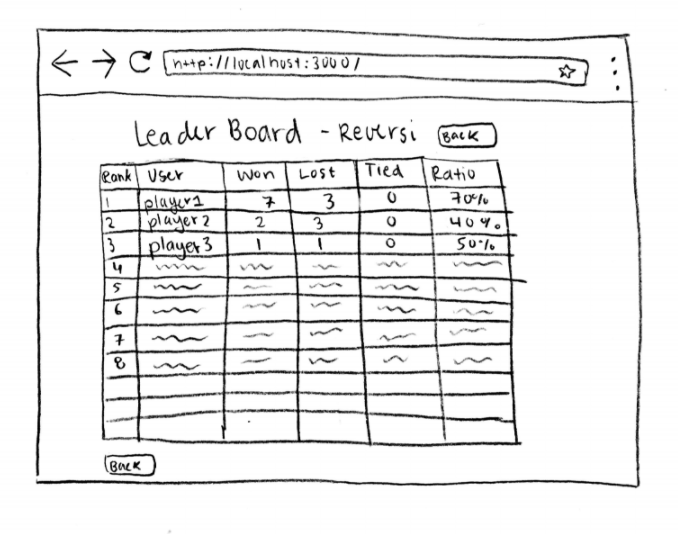 http://localhost:3000/
Leader Board - Reversi Back
Rank User Won Lost Tied Ratio
1 player1 7 3 0 70%
2 player2 2 3 0 40%
3 player3 1 1 0 50%
4
5
6
7
8
Back